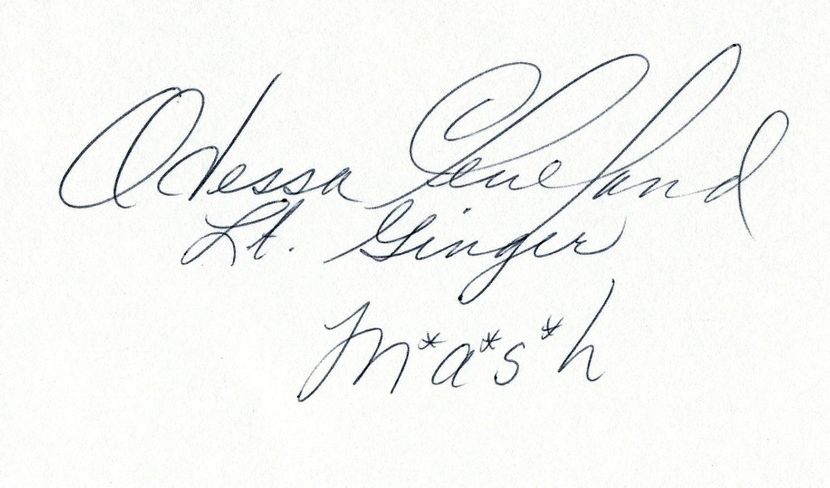 Odessa Cleveland
Lt. Ginger
m*a*s*h